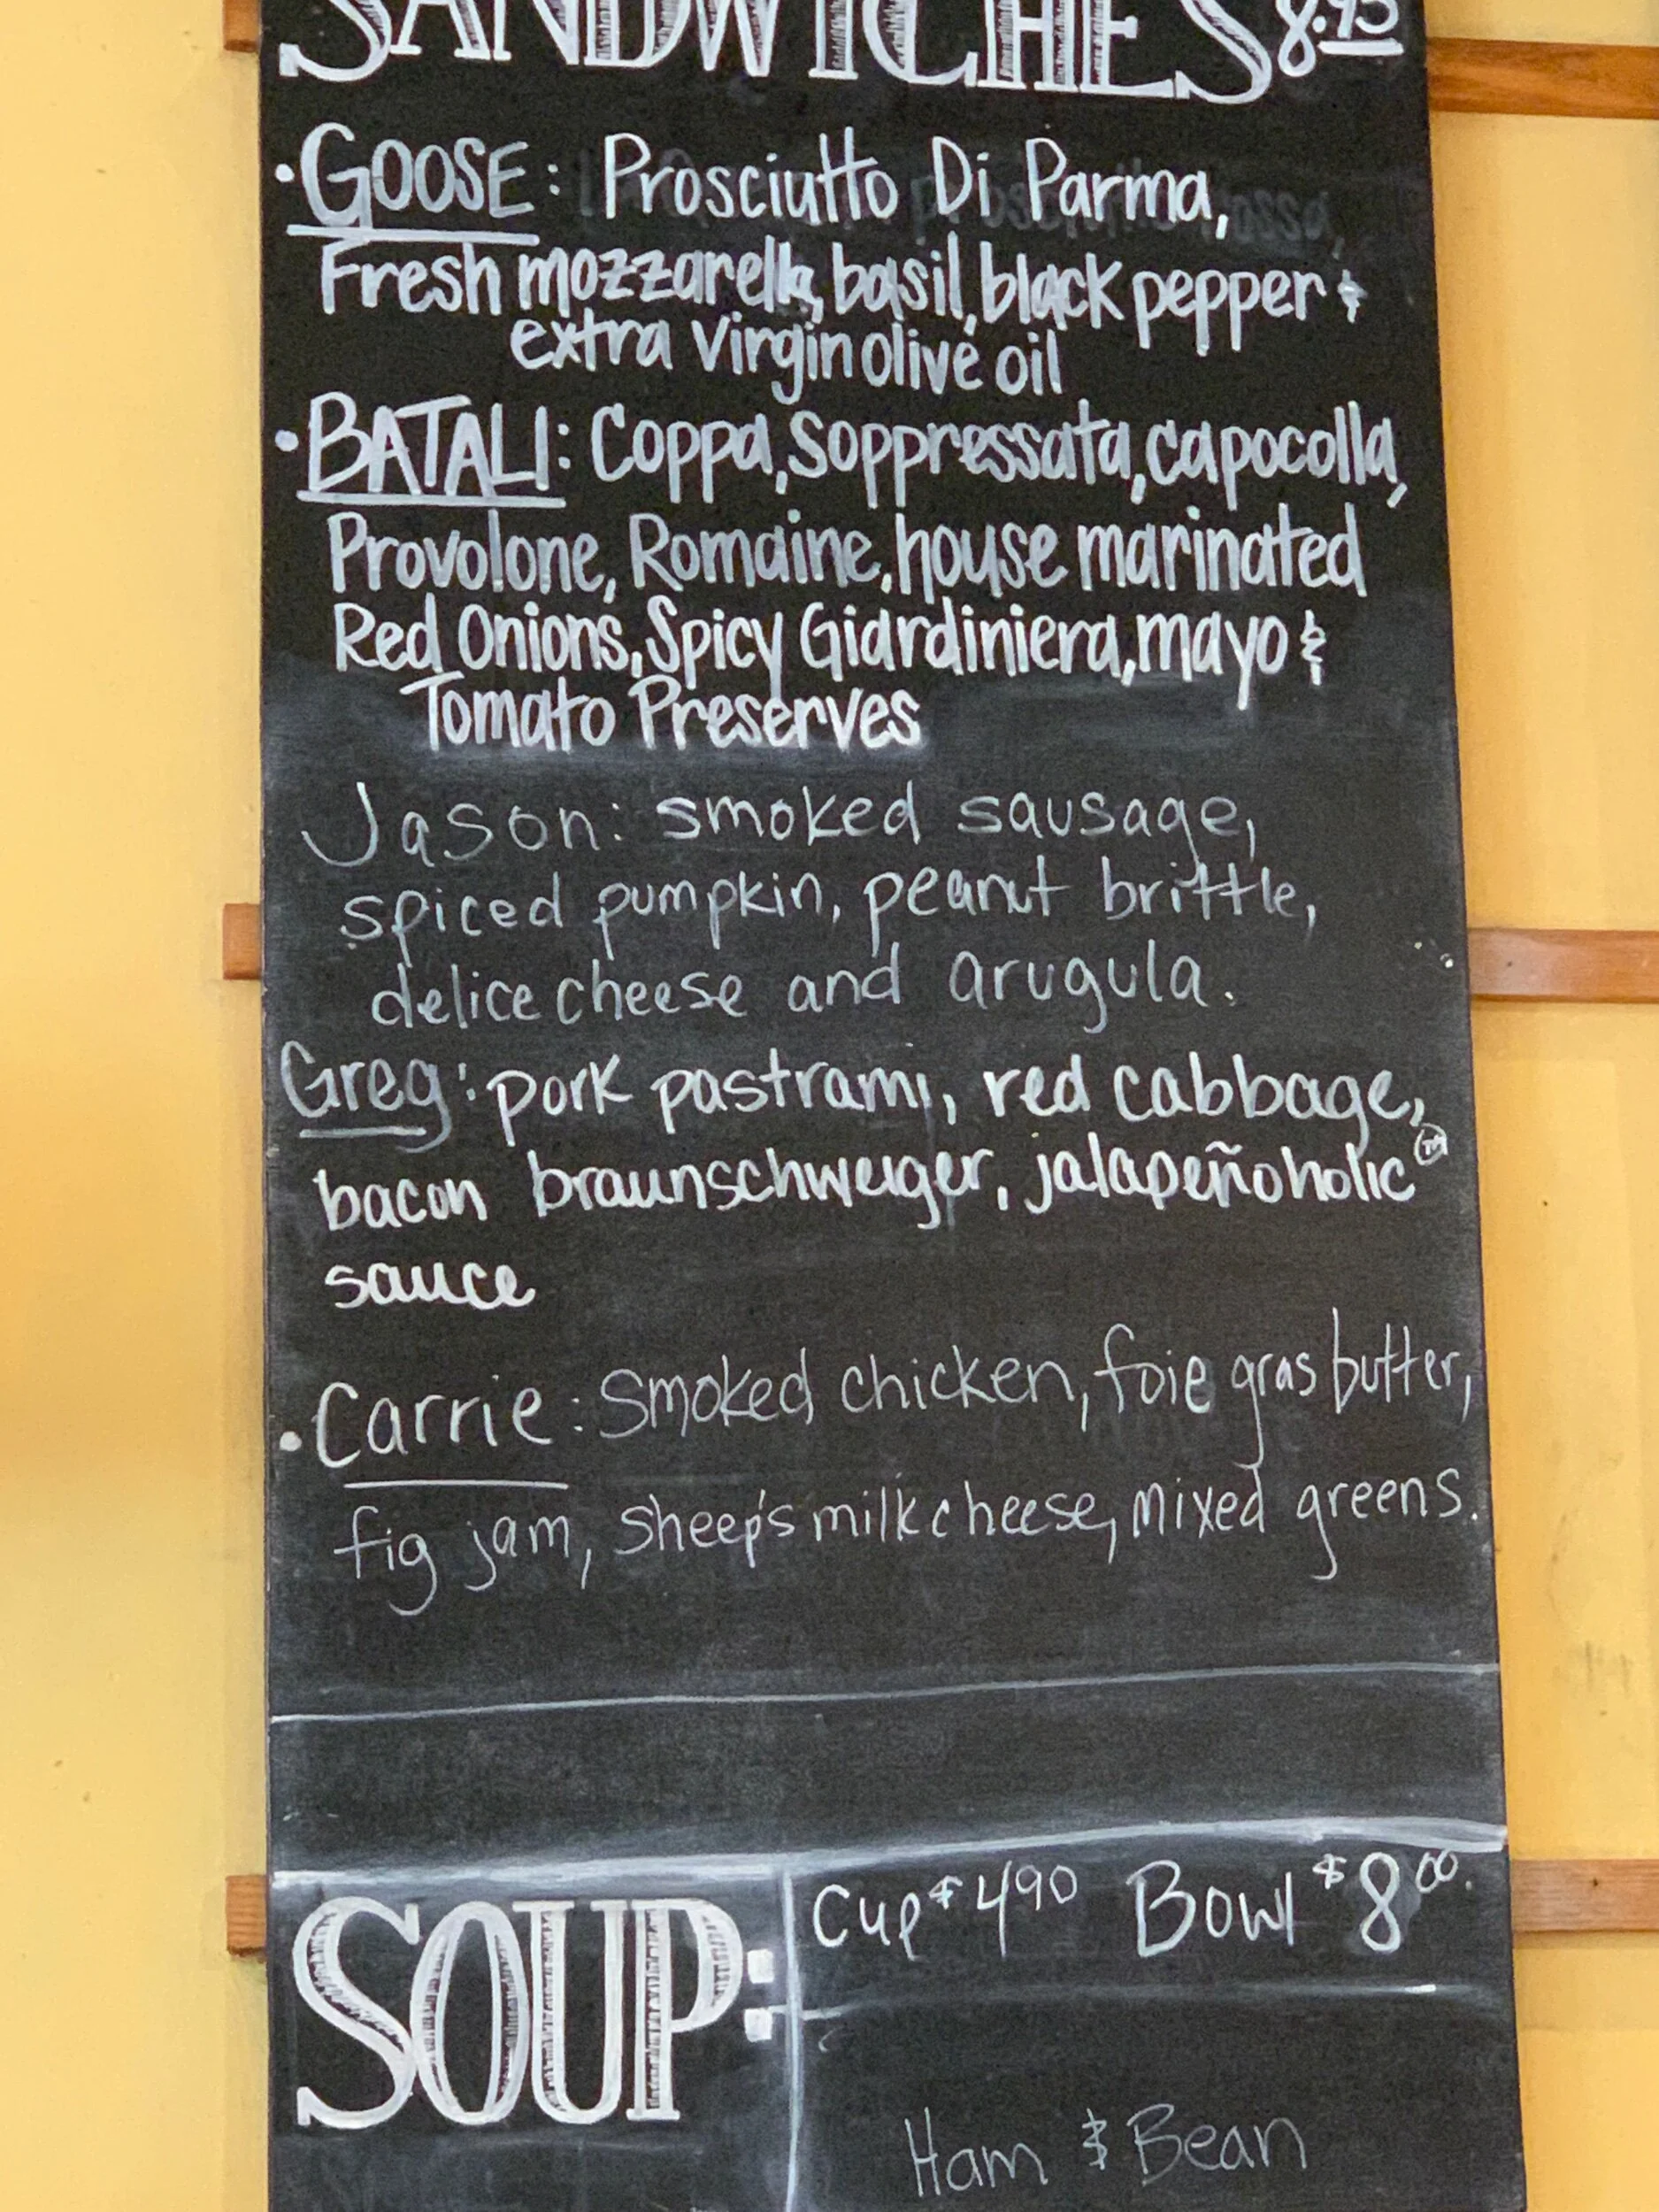 SANDWICHES 8.95
• GOOSE: Prosciutto Di Parma,
Fresh mozzarella, basil, black pepper &
extra virgin olive oil
• BATALI: Coppa, Soppressata, capocolla,
Provolone, Romaine, house marinated
Red Onions, Spicy Giardiniera, mayo &
Tomato Preserves
Jason: smoked sausage,
spiced pumpkin, peanut brittle,
delice cheese and arugula.
Greg: pork pastrami, red cabbage,
bacon braunschweiger, jalapeñoholic™
sauce
• Carrie: Smoked chicken, foie gras butter,
fig jam, Sheep's milk cheese, mixed greens.
SOUP:
Cup $4.90 Bowl $8.00
Ham & Bean